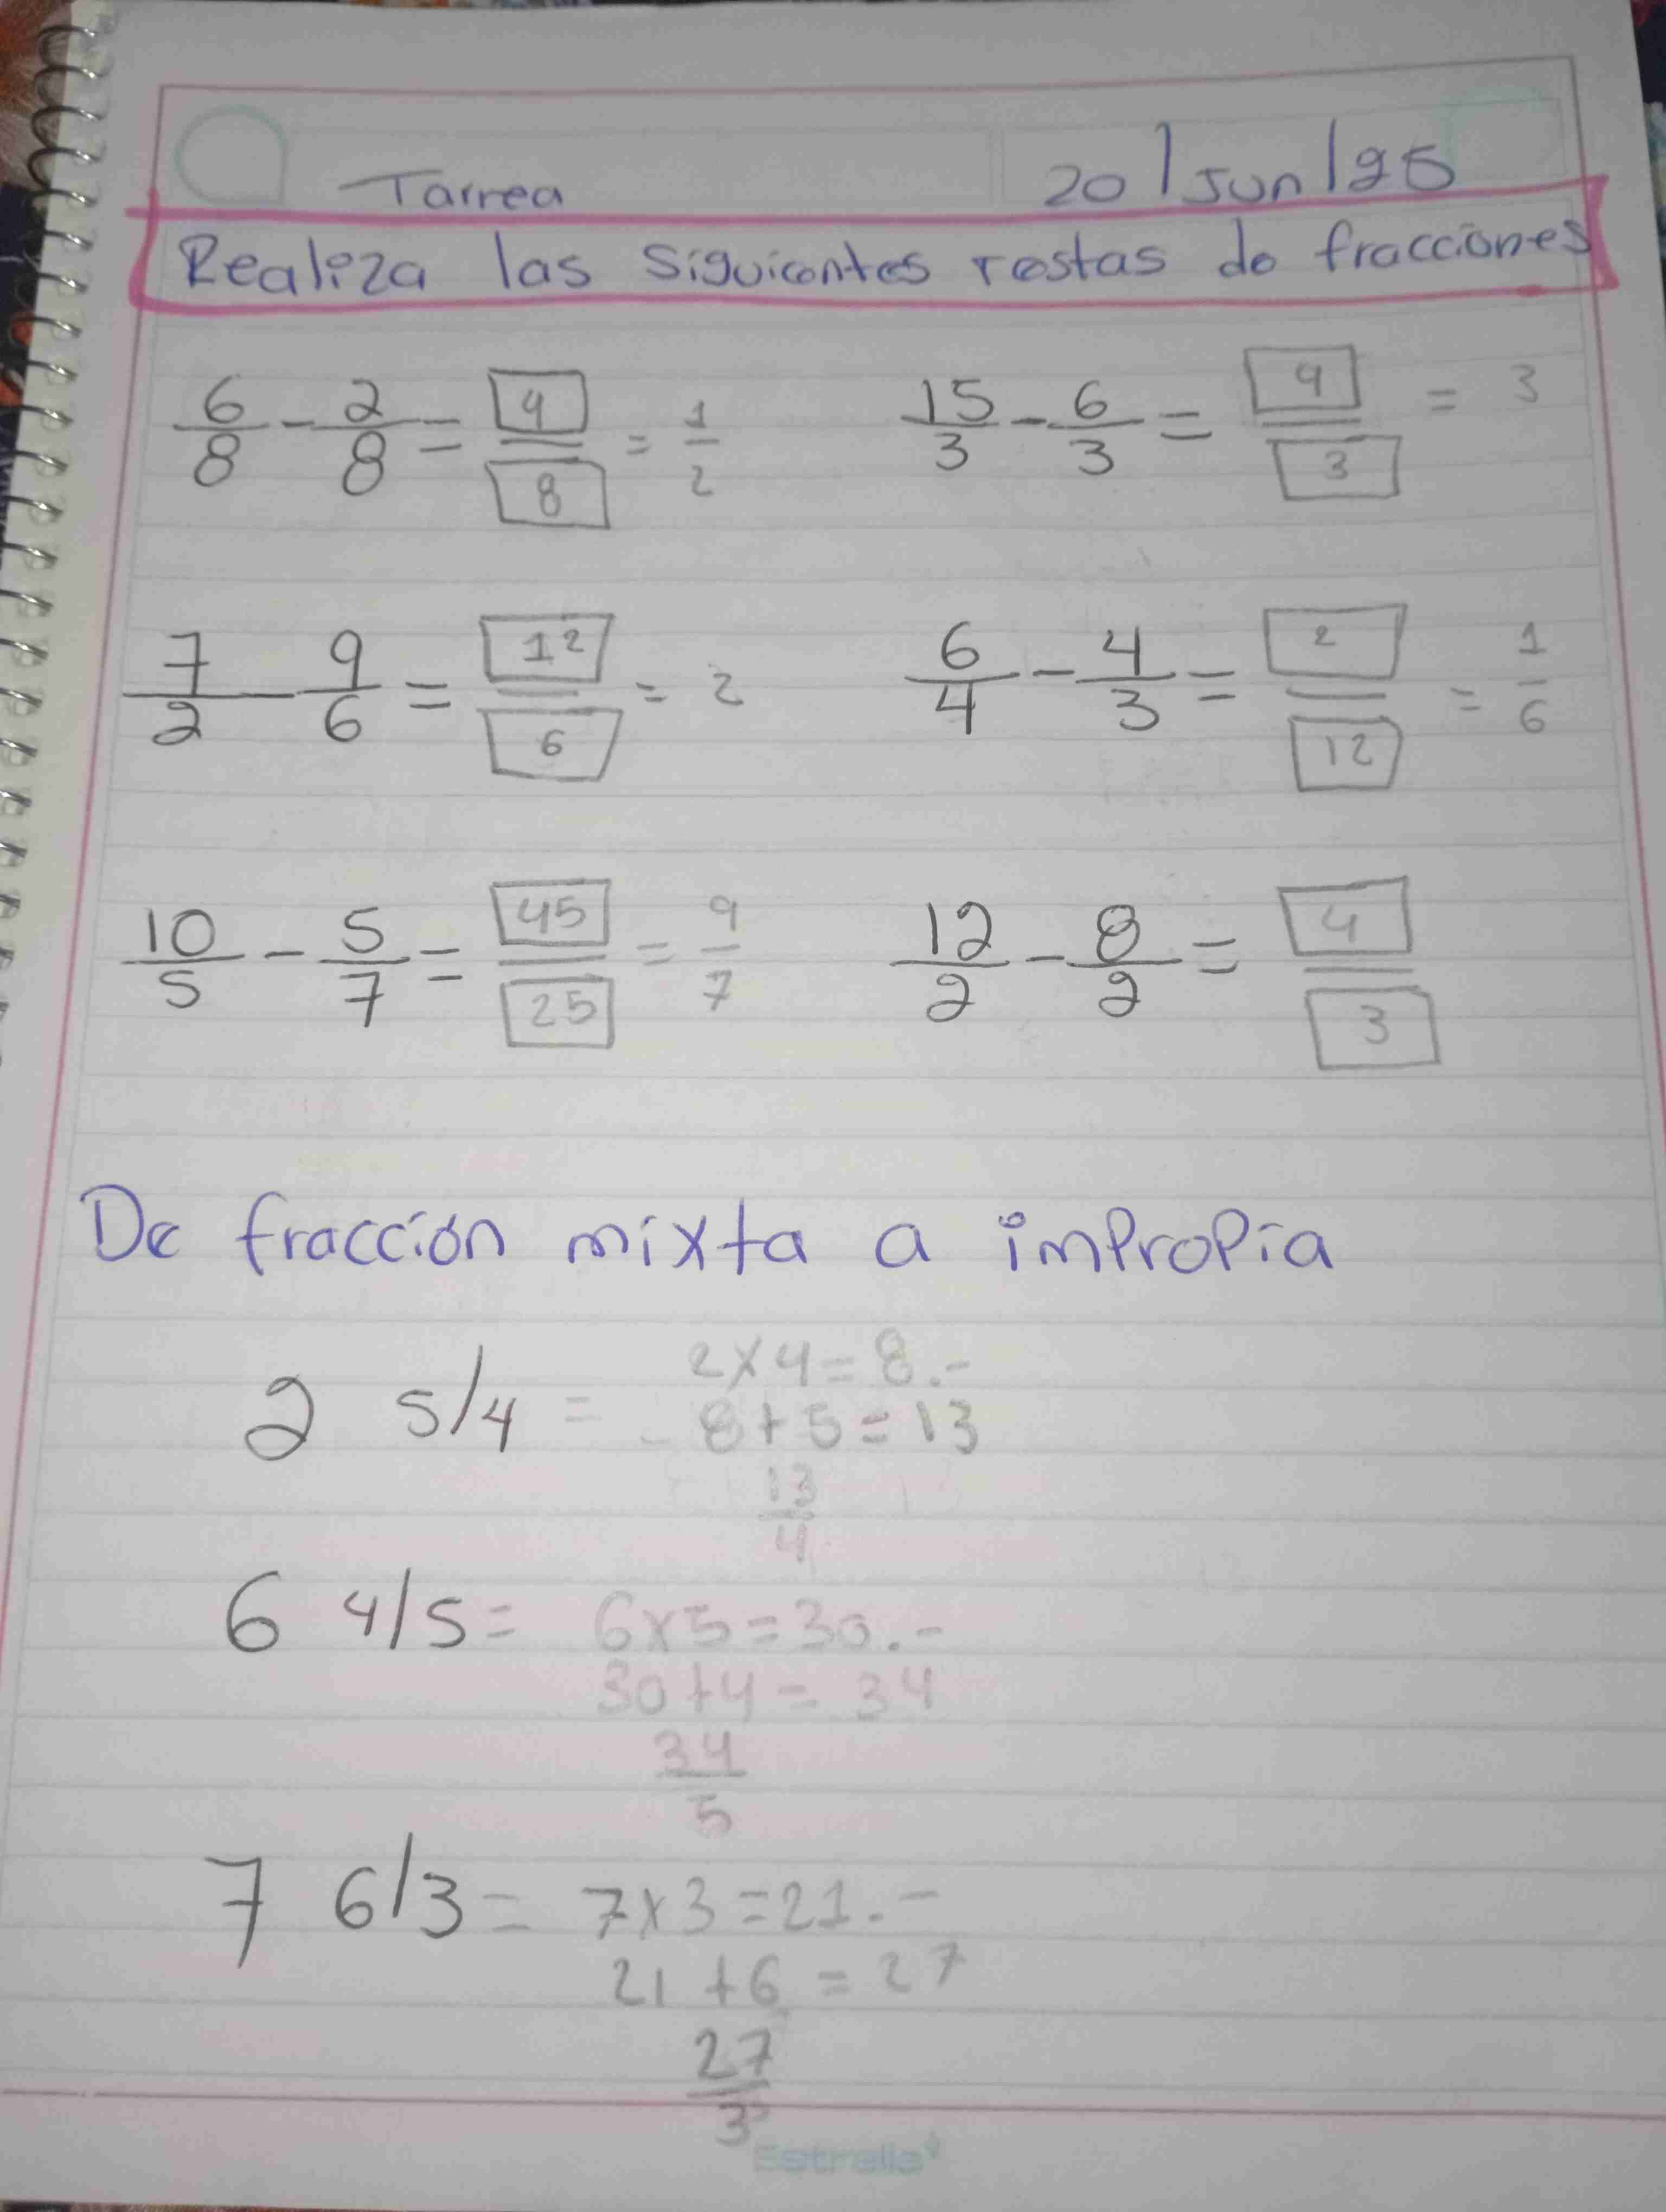 Tarrea 20/Jun/25
Realiza las siguientes restas de fracciones
6/8 - 2/8 = 4/8 = 1/2 15/3 - 6/3 = 9/3 = 3
7/2 - 9/6 = 12/6 = 2 6/4 - 4/3 = 2/12 = 1/6
10/5 - 5/7 = 45/25 = 9/7 12/2 - 8/2 = 4/3
De fracción mixta a impropia
2 5/4 = 2x4=8.-
8+5=13
13/4
6 4/5 = 6x5=30.-
30+4=34
34/5
7 6/3 = 7x3=21.-
21+6=27
27/3
Estrella